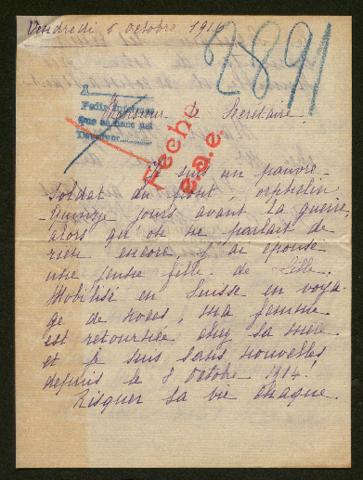 Vendredi 1 octobre 1915
2891
Pedir informes
que se hace así
Monsieur le Secrétaire.
Hecho
e.a.e.
Je suis un pauvre
soldat du front, orphelin,
Quinze jours avant la guerre,
alors qu'on ne parlait de
rien encore, j'ai épousé
une jeune fille de Lille.
Mobilisé en Suisse en voya-
ge de noces, ma femme
est retournée chez sa mère
et je suis sans nouvelles,
depuis le 8 octobre 1914.
Risquer sa vie chaque